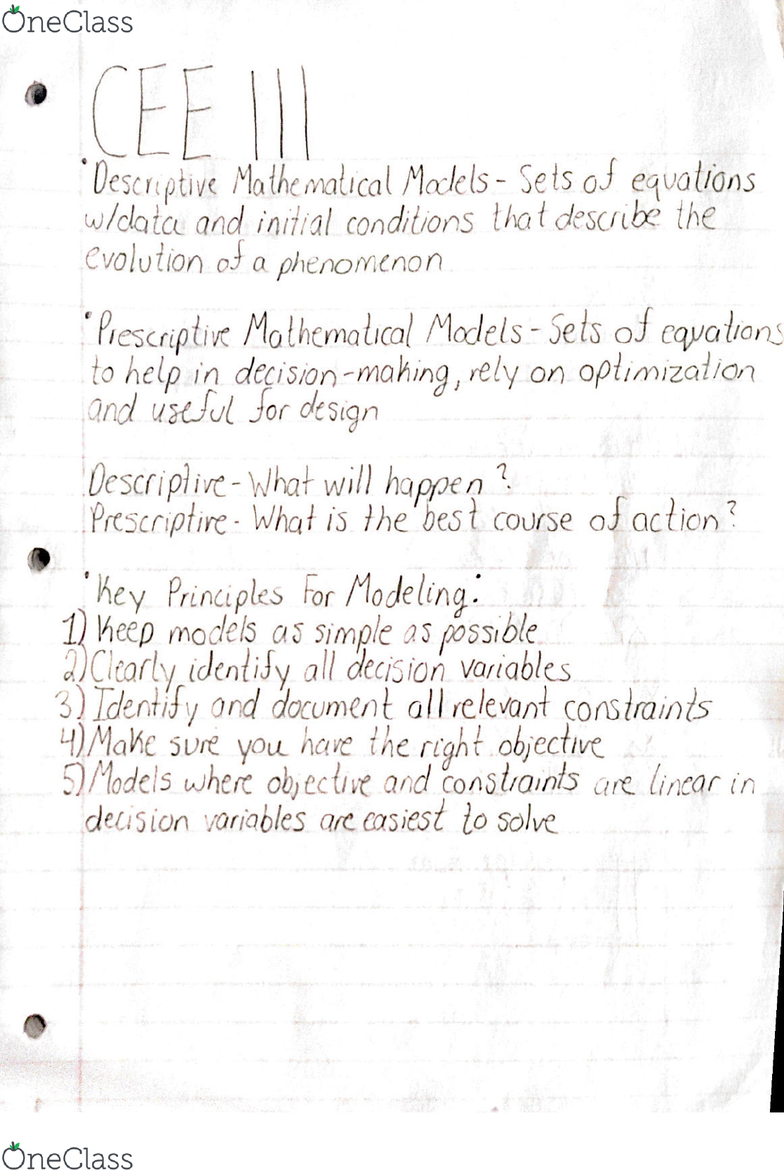 OneClass
CEE 111
•Descriptive Mathematical Models - Sets of equations
w/data and initial conditions that describe the
evolution of a phenomenon
•Prescriptive Mathematical Models - Sets of equations
to help in decision-making, rely on optimization
and useful for design
Descriptive - What will happen?
Prescriptive - What is the best course of action?
•Key Principles For Modeling:
1) Keep models as simple as possible
2) Clearly identify all decision variables
3) Identify and document all relevant constraints
4) Make sure you have the right objective
5) Models where objective and constraints are linear in
decision variables are easiest to solve
OneClass